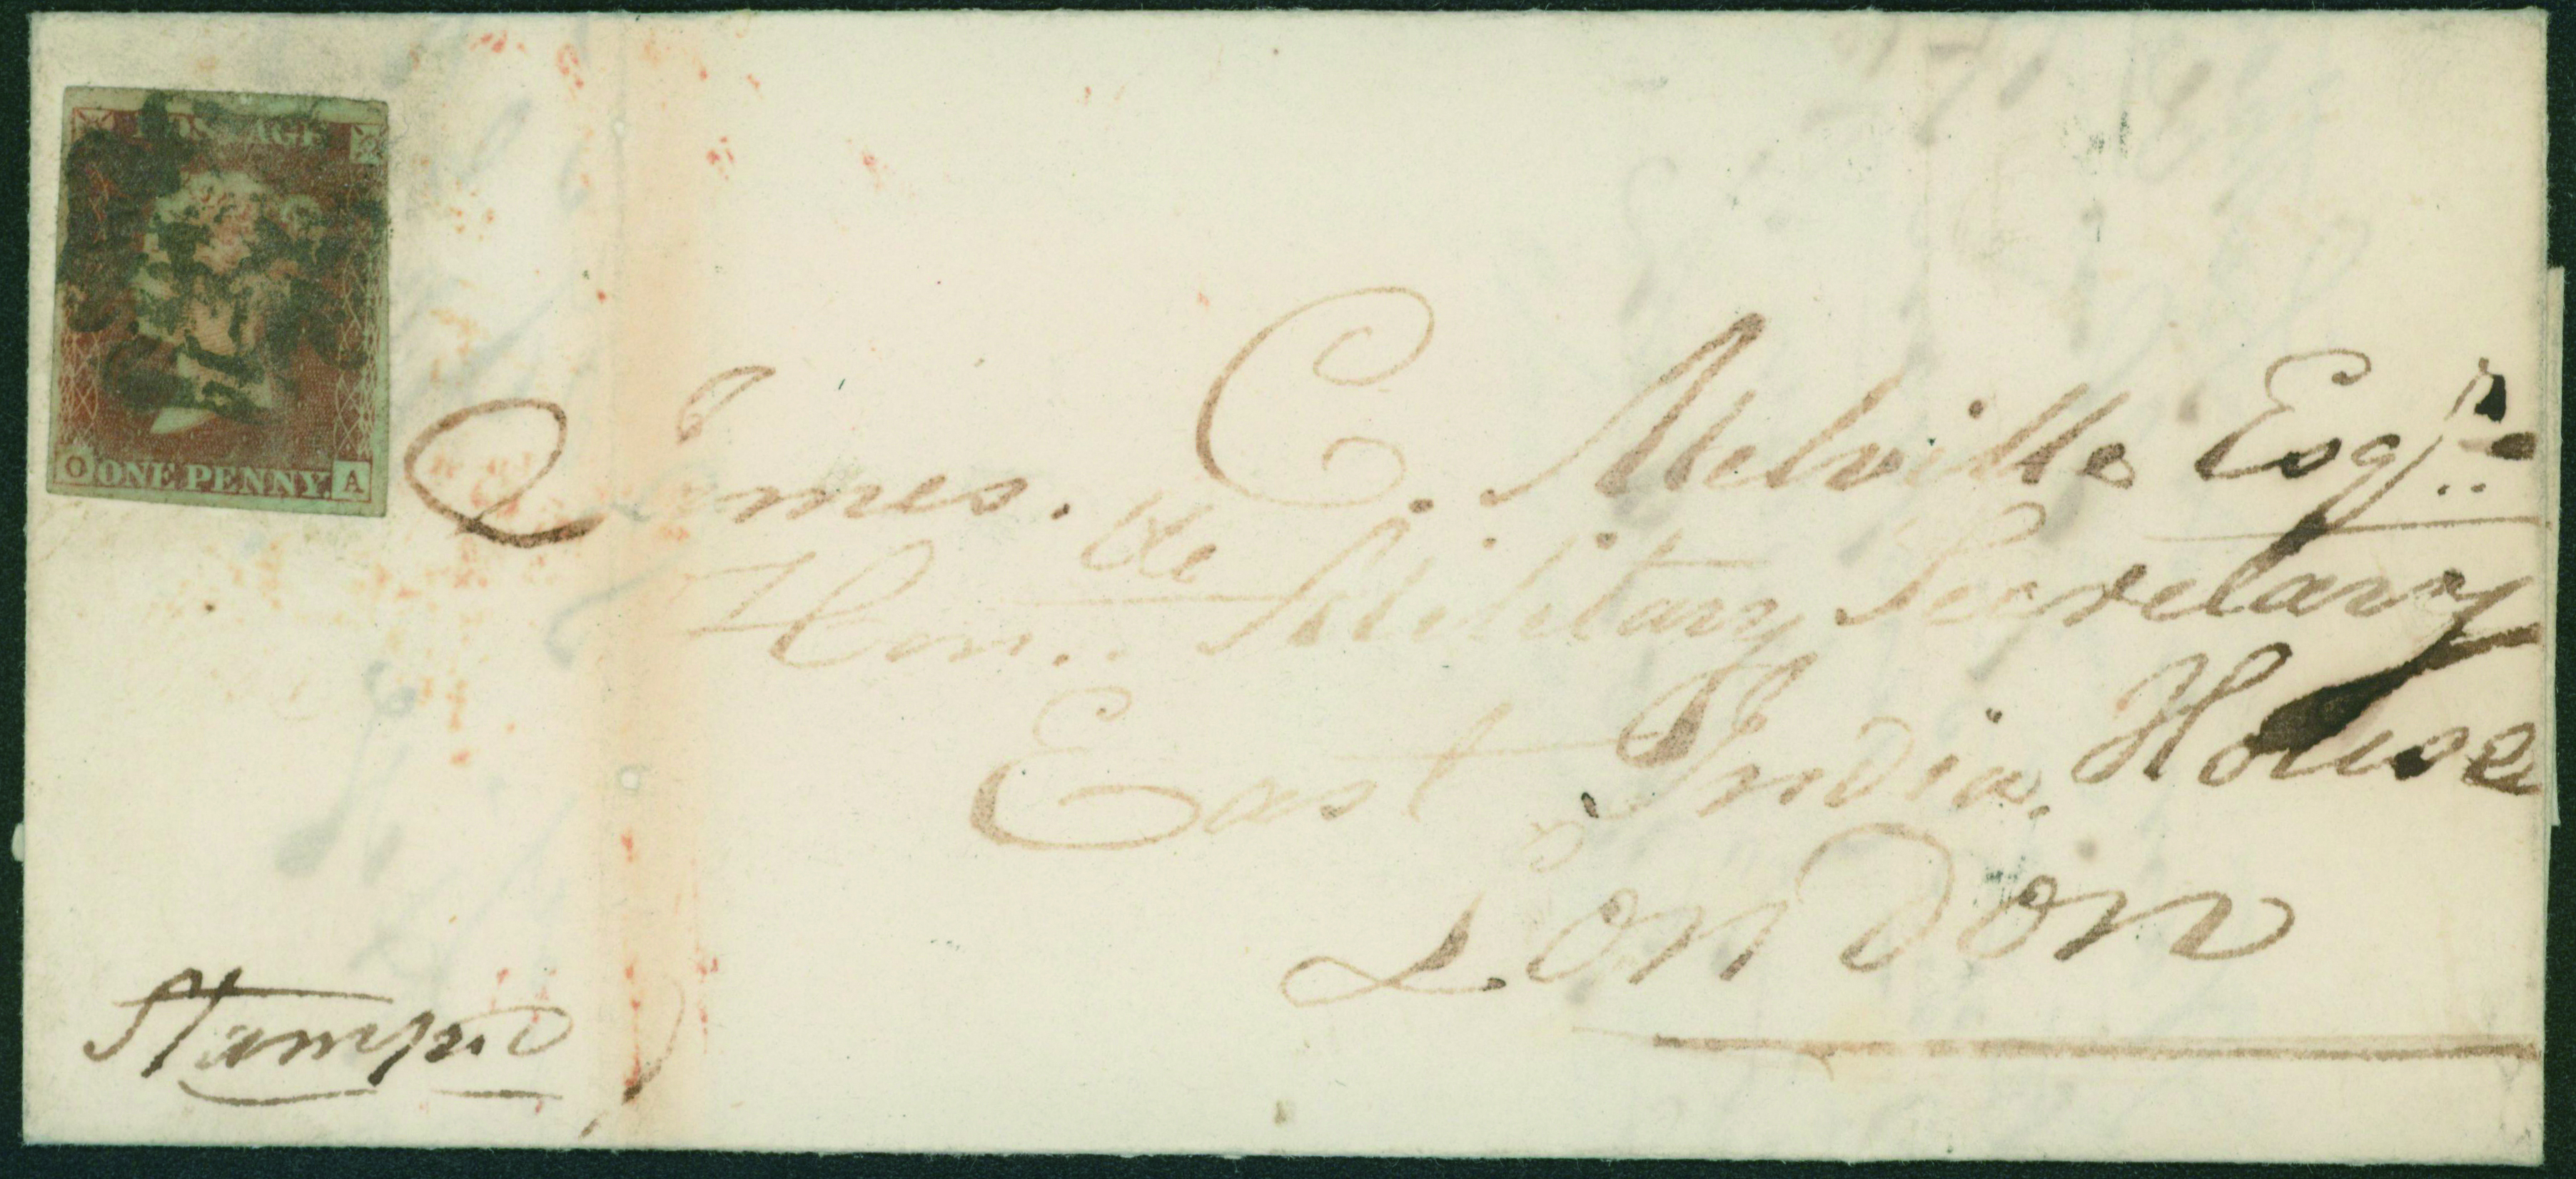 POSTAGE
O ONE PENNY. A
James. C. Melville Esqre
Honble Military Secretary
East India House
London
Stamp.d